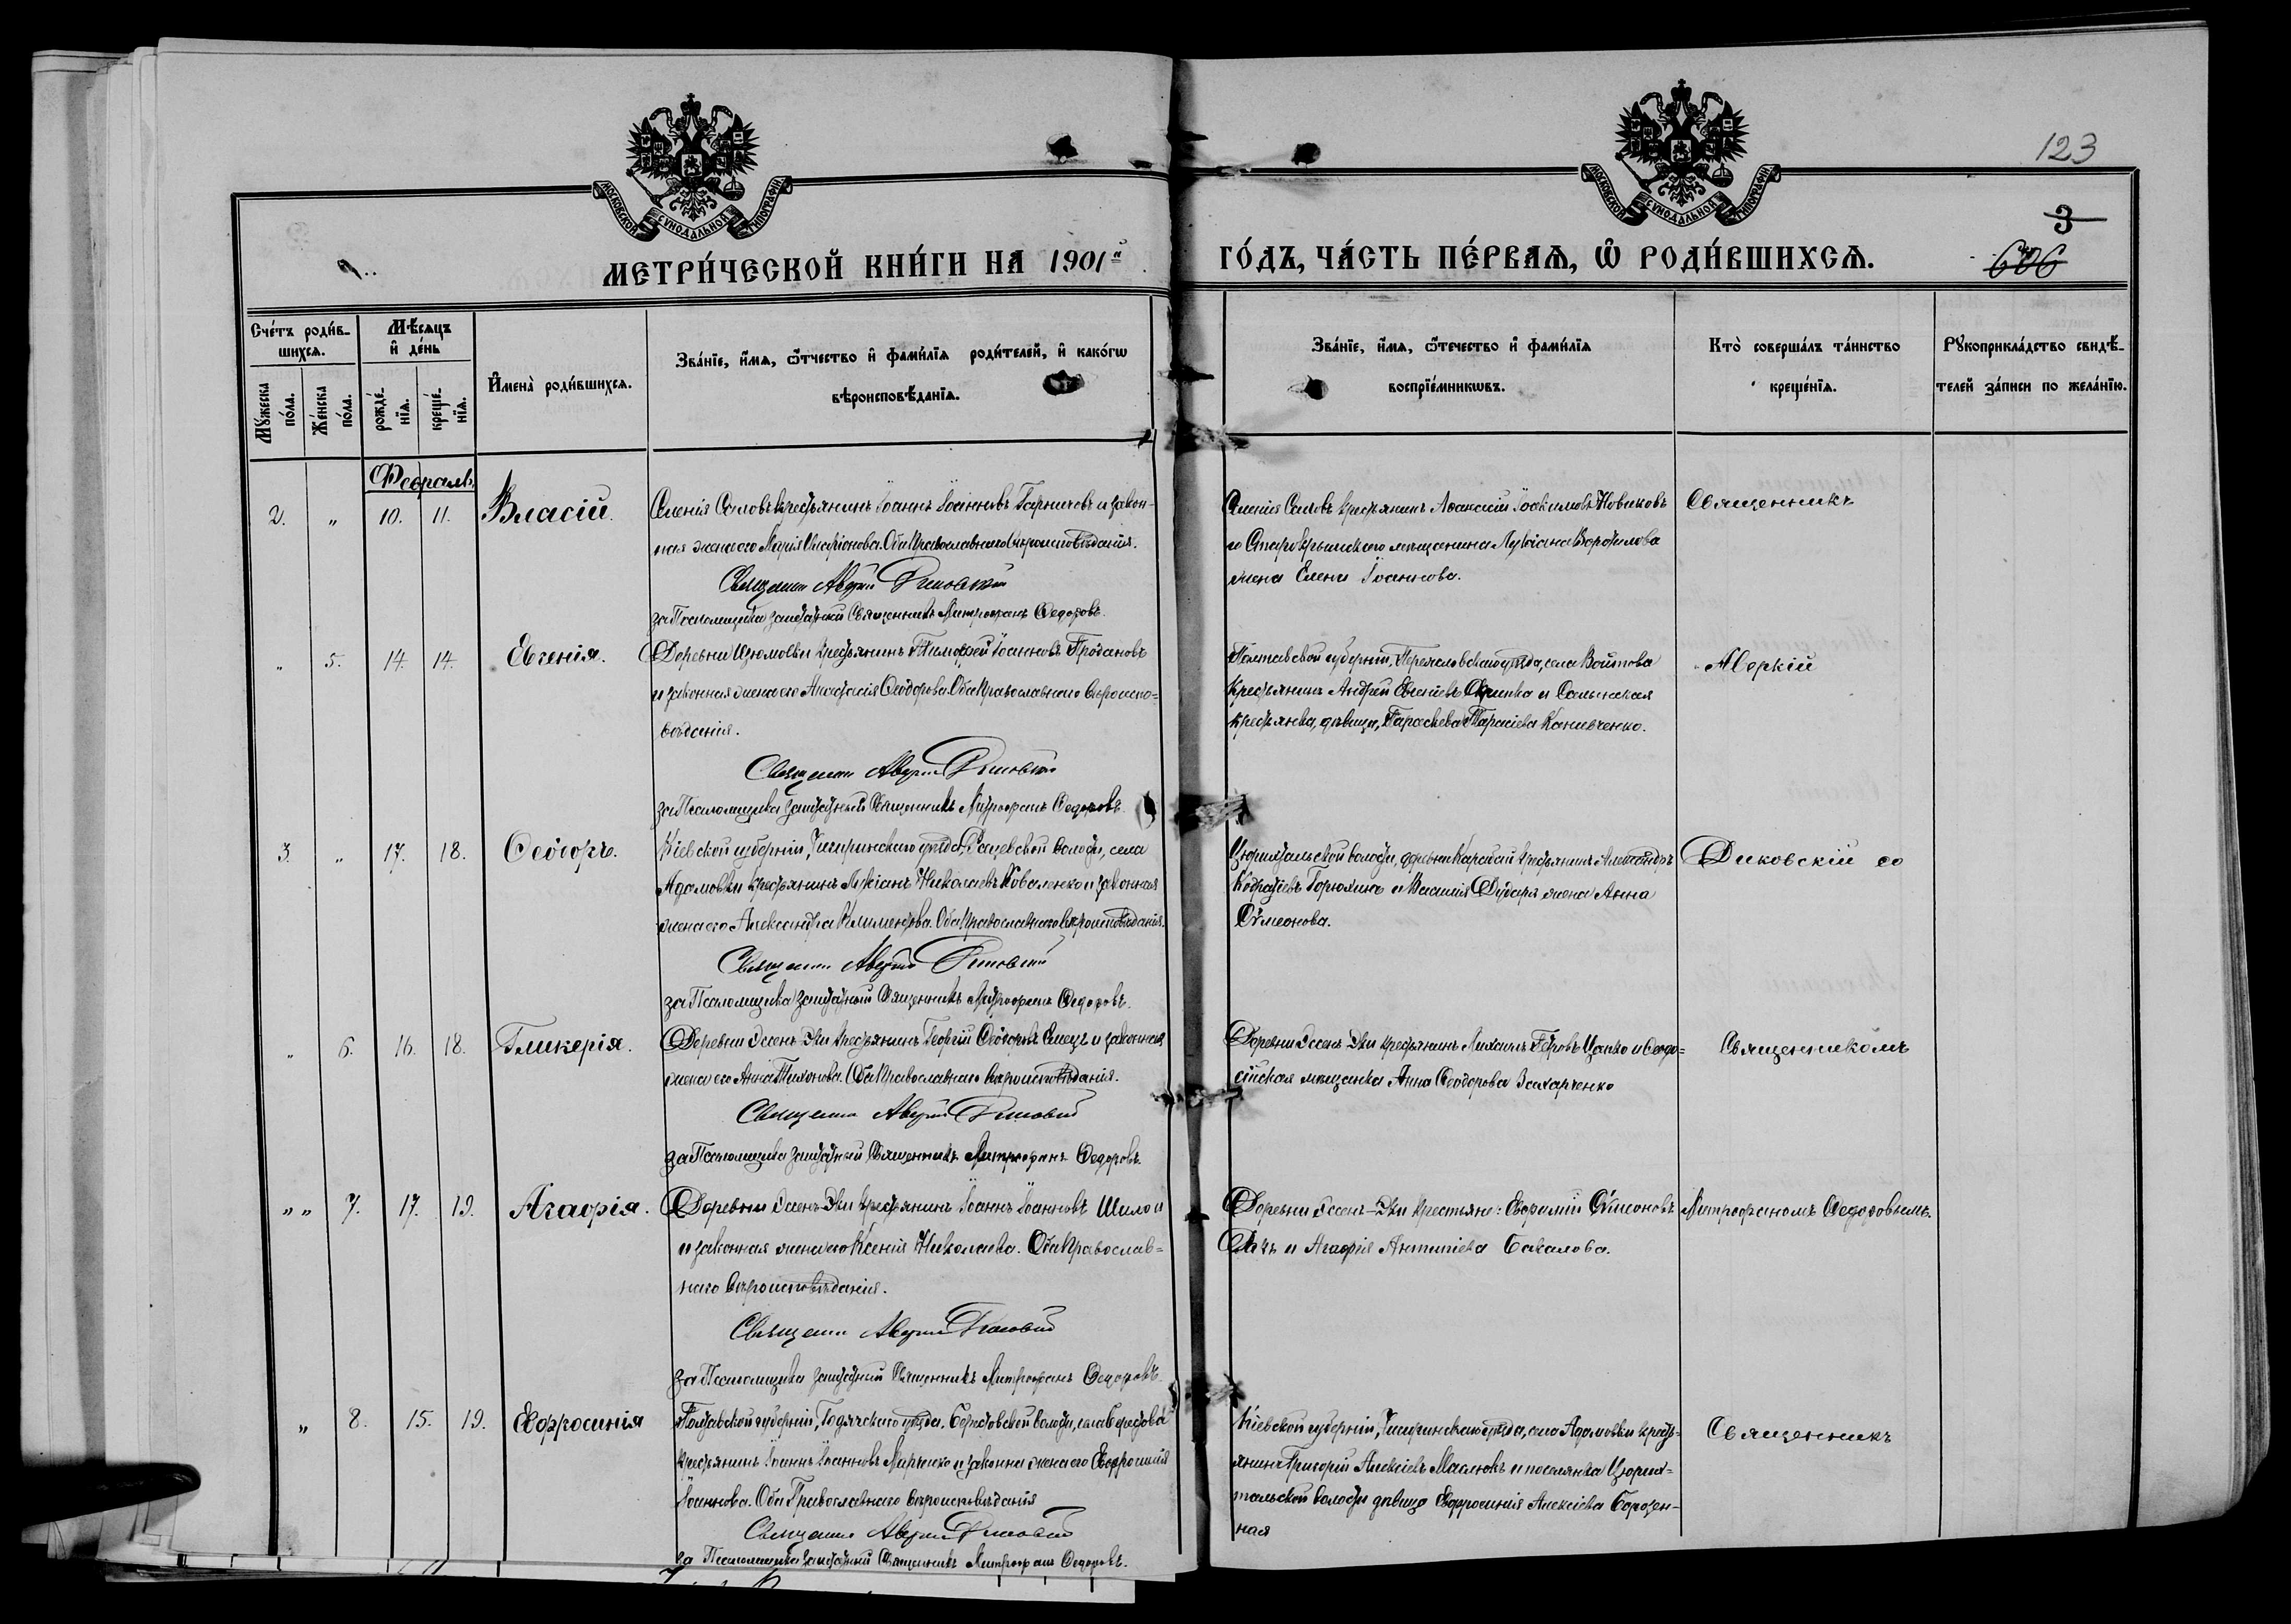 МОСКОВСКОЙ СѴНОДАЛЬНОЙ ТИПОГРАФІИ
МОСКОВСКОЙ СѴНОДАЛЬНОЙ ТИПОГРАФІИ
123
3
606
МЕТРИ́ЧЕСКОЙ КНИ́ГИ НА 1901й
ГО́ДЪ, ЧА́СТЬ ПЕ́РВАѦ, Ѡ҆ РОДИ́ВШИХСѦ.
Сче́тъ роди́в-
шихсѧ.
Мѣ́сяцъ
и҆ де́нь
Мꙋ́жеска по́ла.
Же́нска по́ла.
рожде́-нїѧ.
креще́-нїѧ.
И҆мена̀ роди́вшихсѧ.
Зва́нїе, и҆́мѧ, ѻ҆́тчество и҆ фами́лїѧ роди́телей, и҆ како́гѡ
вѣроисповѣ́данїѧ.
Зва́нїе, и҆́мѧ, ѻ҆те́чество и҆ фами́лїѧ
воспрїе́мникѡвъ.
Кто̀ соверша́лъ та́инство
креще́нїѧ.
Рꙋкоприкла́дство свидѣ́-
телей за́писи по жела́нїю.
Февраль.
2. „ 10. 11. Власій.
Имѣнія Саловъ крестьянинъ Іоаннъ Іоанновъ и закон-
ная жена его Марія Оба Православнаго вѣроисповѣданія.
Священникъ Аверкій Диковскій
за Псаломщика заштатный Священникъ Митрофанъ Ѳедоровъ.
Имѣнія Саловъ крестьянинъ Аѳанасій Іоакимовъ Новиковъ
и Старокрымскаго мѣщанина Лукіана Ворожилова
жена Елена Іоаннова.
Священникъ
„ 5. 14. 14. Евгенія.
Деревни Изюмовки крестьянинъ Тимоѳей Іоанновъ Продановъ
и законная жена его Анастасія Ѳеодорова Оба Православнаго вѣроиспо-
вѣданія.
Священникъ Аверкій Диковскій
за Псаломщика заштатный Священникъ Митрофанъ Ѳедоровъ.
Полтавской губерніи, Переяславскаго уѣзда, села Войтова
крестьянинъ Андрей Евгеніевъ Скрипка и
крестьянка, дѣвица, Параскева Тарасіева Канивченко.
Аверкій
3. „ 17. 18. Ѳеодоръ.
Кіевской губерніи, Чигиринскаго уѣзда, Рацевской волости, села
Адамовки крестьянинъ Лукіанъ Николаевъ Коваленко и законная
жена его Александра Климентова. Оба Православнаго вѣроисповѣданія.
Священникъ Аверкій Диковскій
за Псаломщика заштатный Священникъ Митрофанъ Ѳедоровъ.
Цюрихтальской волости, деревни Карабай крестьянинъ Александръ
Кодратіевъ Горюхинъ и Василія Дударя жена Анна
Сѵмеонова.
Диковскій со
„ 6. 16. 18. Гликерія.
Деревни Эссенъ-Эки крестьянинъ Георгій Ѳеодоровъ и законная
жена его Анна Тихонова. Оба Православнаго вѣроисповѣданія.
Священникъ Аверкій Диковскій
за Псаломщика заштатный Священникъ Митрофанъ Ѳедоровъ.
Деревни Эссенъ-Эки крестьянинъ Михаилъ Петровъ Цапко и Ѳеодо-
сійская мѣщанка Анна Ѳеодорова Захарченко
Священникомъ
„ „ 7. 17. 19. Агаѳія.
Деревни Эссенъ-Эки крестьянинъ Іоаннъ Іоанновъ Шило и
и законная жена его Ксенія Николаева. Оба Православ-
наго вѣроисповѣданія.
Священникъ Аверкій Диковскій
за Псаломщика заштатный Священникъ Митрофанъ Ѳедоровъ.
Деревни Эссенъ-Эки крестьяне: Евфимій Сѵмеоновъ
и Агаѳія Антипіева Бакалова.
Митрофаномъ Ѳедоровымъ.
„ 8. 15. 19. Евфросинія
Полтавской губерніи, Гадячскаго уѣзда, волости, села
крестьянинъ Іоаннъ Іоанновъ Марченко и законная жена его Евфросинія
Іоаннова. Оба Православнаго вѣроисповѣданія
Священникъ Аверкій Диковскій
за Псаломщика заштатный Священникъ Митрофанъ Ѳедоровъ.
Кіевской губерніи, Чигиринскаго уѣзда, села Адамовки кресть-
янинъ Григорій Алексіевъ Маслюкъ и поселянка Цюрих-
тальской волости дѣвица Евфросинія Алексіева Борозен-
ная
Священникъ